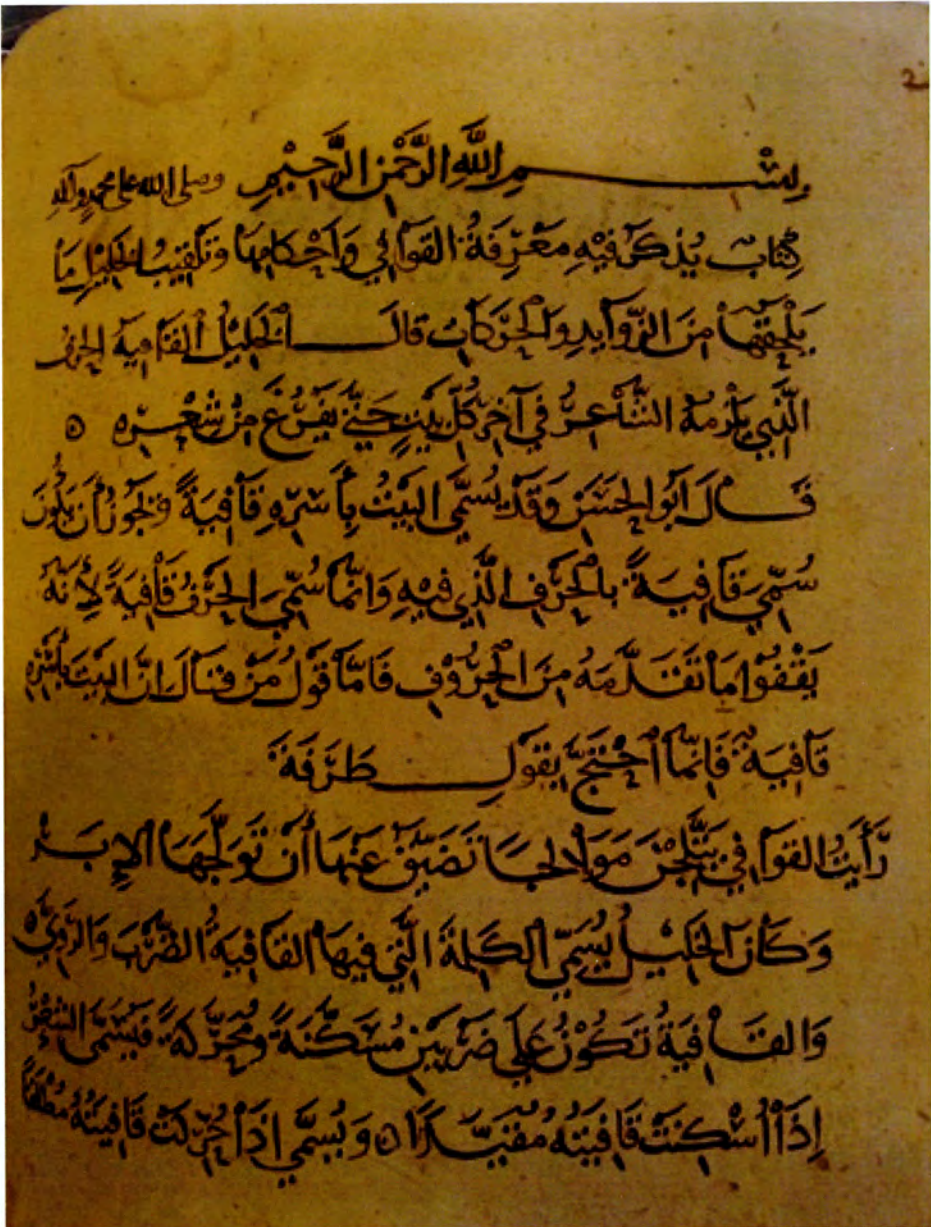 بِسْمِ اللهِ الرَّحْمٰنِ الرَّحِيْمِ وصلى الله على محمد وآله
كِتَابٌ يُذْكَرُ فِيْهِ مَعْرِفَةُ القَوَافِي وَأَحْكَامِهَا وَتَلْقِيْبُ الخَلِيْلِ مَا
يَلْحَقُهَا مِنَ الزَّوَايِدِ وَالْحَرَكَاتِ قَالَ الْخَلِيْلُ الْقَافِيَةُ الحَرْفُ
الَّذِي يَلْزَمُهُ الشَّاعِرُ فِي آخِرِ كُلِّ بَيْتٍ حَتَّى يَفْرُغَ مِنْ شِعْرِهِ ه
قَالَ أَبُو الحَسَنِ وَقَدْ يُسَمَّى البَيْتُ بِأَسْرِهِ قَافِيَةً وَيَجُوزُ أَنْ يَكُونَ
سُمِّيَ قَافِيَةً بِالْحَرْفِ الَّذِي فِيْهِ وَإِنَّمَا سُمِّيَ الْحَرْفُ قَافِيَةً لِأَنَّهُ
يَقْفُوا مَا تَقَدَّمَهُ مِنَ الْحُرُوْفِ فَامَّا قَوْلُ مَنْ قَالَ إِنَّ البَيْتَ بِأَسْرِهِ
قَافِيَةٌ فَإِنَّمَا احْتَجَّ بِقَولِ طَرَفَةَ
رَأَيْتُ القَوَافِي يَتَّلِجْنَ مَوَالِجَا تَضَيَّقُ عَنْهَا أَنْ تَوَلَّجَهَا الْإِبَرْ
وَكَانَ الخَلِيْلُ يُسَمِّي الْكَلِمَةَ الَّتِي فِيهَا القَافِيَةُ الضَّرْبَ وَالرَّوِيَّ ه
وَالقَافِيَةُ تَكُوْنُ عَلَى ضَرْبَيْنِ مُسَكَّنَةً وَمُحَرَّكَةً فَيُسَمَّى الشِّعْرُ
إِذَا أُسْكِنَتْ قَافِيَتُهُ مُقَيَّدًا ه وَيُسَمَّى إِذَا حُرِّكَتْ قَافِيَتُهُ مُطْلَقًا